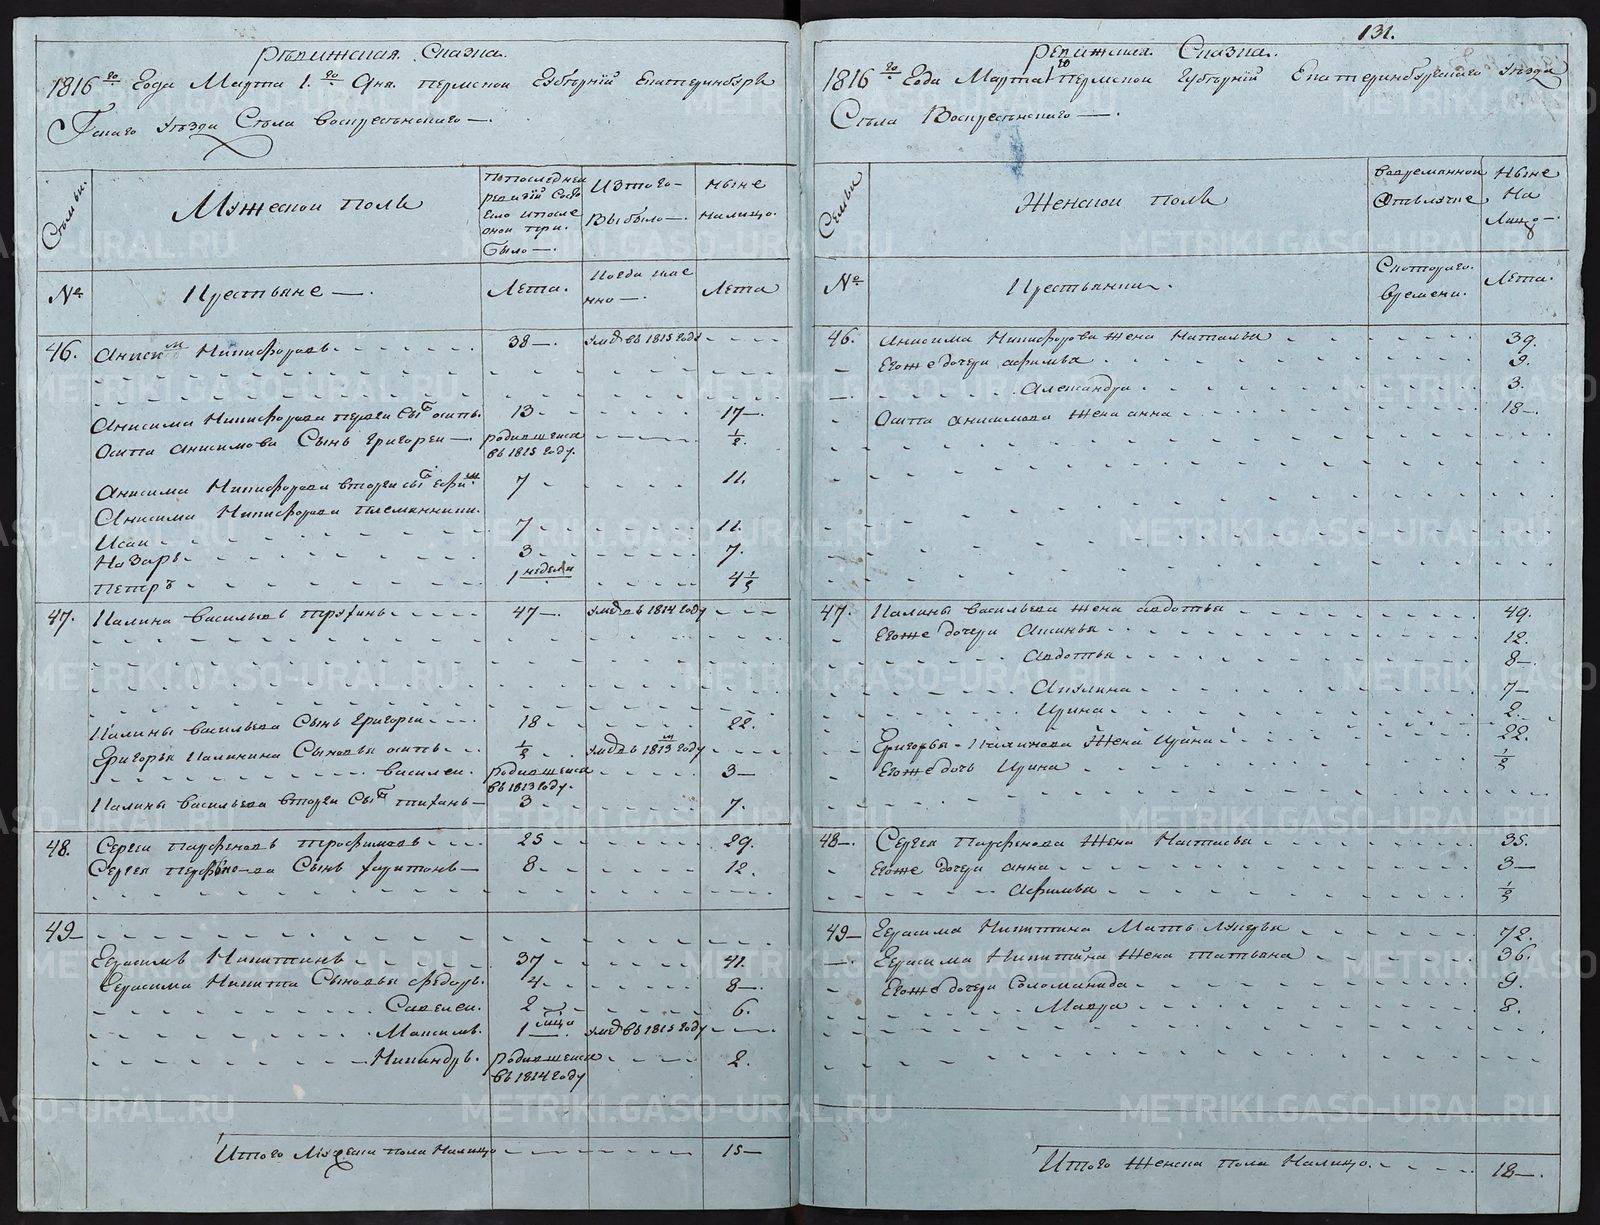 Ревижская Сказка.
1816 го Года Марта 1. го Дня. Пермской Губернiй Екатеринбург
Скаго Уезда Села Воскресенскаго —.
Семьи.
Мужеской полъ
По последней
ревизiй Состо
яло и после
оной при.
было —.
Из того —
Выбыло —.
Ныне
налицо.
№
Крестьяне —.
Лета.
Когда име
нно —.
Лета
46. Анисим Никифоровъ 38 —. умъ въ 1815 году
Анисима Никифорова первой Сынъ осипъ. 13 17 —.
Осипа Анисимова Сынъ Григореи — родившеися въ 1815 году. 1/2.
Анисима Никифорова второи сынъ ефимъ 7 11.
Анисима Никифорова племянники.
Исаи 7 11.
Назаръ 3 7.
Петръ 1 недели 4 1/2
47. Калина Васильевъ 47 —. умъ въ 1814 году
Калины Васильева Сынъ Григореи 18 22.
Григорья Калинина Сыновья осипъ 1/2 умъ въ 1813 году
Василеи. родившеися въ 1813 году. 3 —
Калины Васильева второи Сынъ 3 7.
48. Сергеи Парфеновъ 25 29.
Сергея Парфенова Сынъ харитонъ — 8 12.
49 —
Герасимъ Никитинъ 37 41.
Герасима Никитина Сыновья федоръ. 4 8 —.
Савелеи. 2 6.
Максимъ. 1 умъ въ 1815 году
Никандръ. родившеися въ 1814 году 2.
Итого Мужеска пола Налицо 15 —
131.
Ревижская Сказка.
1816 го Года Марта 1 го Пермской Губернiй Екатеринбургскаго Уезда
Села Воскресенскаго —.
Семьи
Женской полъ
Вовременной
Отлучке
Ныне
На
Лицо —.
№
Крестьянки.
Скотораго.
Времени.
Лета.
46. Анисима Никифорова жена Наталья 39.
Егоже дочери афимья 9.
Александра 3.
Осипа анисимова жена анна 18 —.
47. Калины Васильева жена авдотья 49.
Егоже дочери Аксинья 12.
Авдотья 8 —.
Акулина 7 —
Ирина 2.
Григорья Калинова Жена Ирина 22.
Егоже дочь Ирина 1/2
48 —. Сергея Парфенова Жена Настасья 35.
Егоже дочери анна 3 —
Афимья 1/2
49 — Герасима Никитина Мать Лукерья 72.
Герасима Никитина Жена татьяна 36.
Егоже дочери Соломанида 9.
Мавра 8.
Итого Женска пола Налицо. 18 —.
METRIKI.GASO-URAL.RU